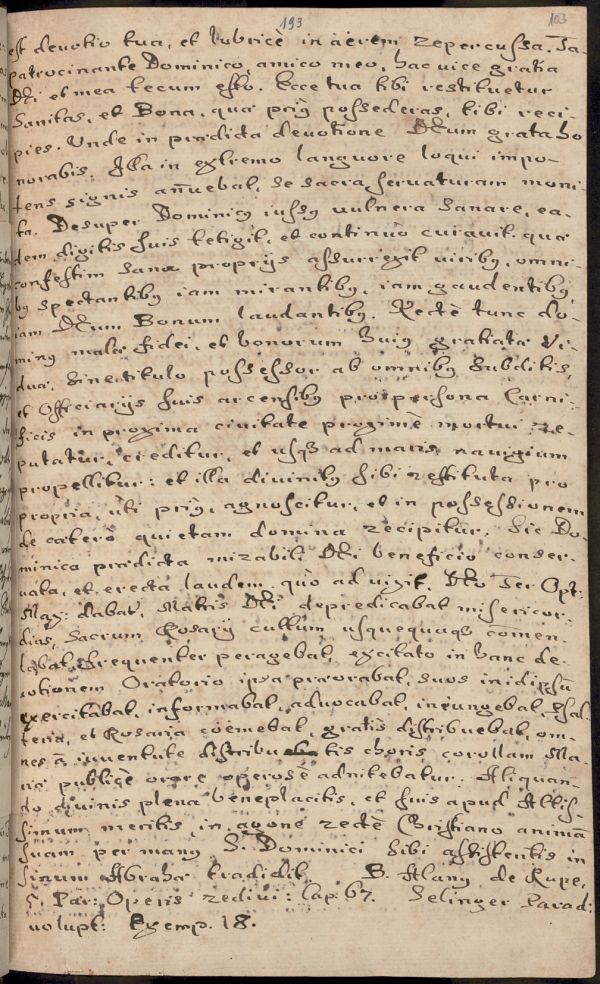 193 103
est devotio tua, et lubricè in aërem repercussa. Ta-
patrocinante Dominico amico meo, hac vice gratia
Dei et mea tecum esto. Ecce tua tibi restituetur
Sanitas, et Bona, quæ priꝰ possederas, tibi reci-
pies. Unde in prædicta devotione Deum grata ho
norabis. Illa in extremo languore loqui impo-
tens signis annuebat, se sacra servaturam moni-
ta. Desuper Dominicꝰ iussꝰ vulnera sanare, ea-
dem digitis suis tetigit, et continuò curavit. quæ
confestim sana proprijs assurrexit viribꝰ, omni-
bꝰ spectantibꝰ iam mirantibꝰ, iam gaudentibꝰ,
iam Deum Bonum laudantibꝰ. Rectè tunc do-
minꝰ malæ fidei, et bonorum huiꝰ gratiata Vi-
dua, sine titulo possessor ab omnibꝰ subditis,
et Officiarijs suis arcensibꝰ pro persona Carni-
ficis in proxima civitate proximè mortui re-
putatur, creditur, et usqꝫ ad maris navigium
propellitur: et illa divinitꝰ sibi restituta pro
propria, uti priꝰ, agnoscitur, et in possessionem
de cætero quietam domina recipitur. Sic Do-
minica prædicta mirabili Dei beneficio conser-
vata, et erecta laudem quò ad vixit, Deo Ter Opt:
Max: dabat, Matris Dei depredicabat misericor-
dias, Sacrum Rosarij cultum usquequaqꝫ comen-
dabat, frequenter peragebat, excitato in hanc de-
votionem Oratorio ipsa præorabat, suos in id ipsū
exercitabat, informabat, advocabat, iniungebat, Psal-
teria, et Rosaria coëmebat, gratis distribuebat, om-
nes à iuventute distributis choris corollam Ma-
riæ publicè orare operosè adnitebatur. Aliquan-
do divinis plena beneplacitis, et suis apud Altis-
simum meritis in agone rectè Christiano animā
suam per manꝰ S. Dominici sibi assistentis in
sinum Abrahæ tradidit. B. Alanꝰ de Rupe,
5. Par: Operis redivi: Cap. 67. Selinger Parad:
volupt: Exemp. 18.